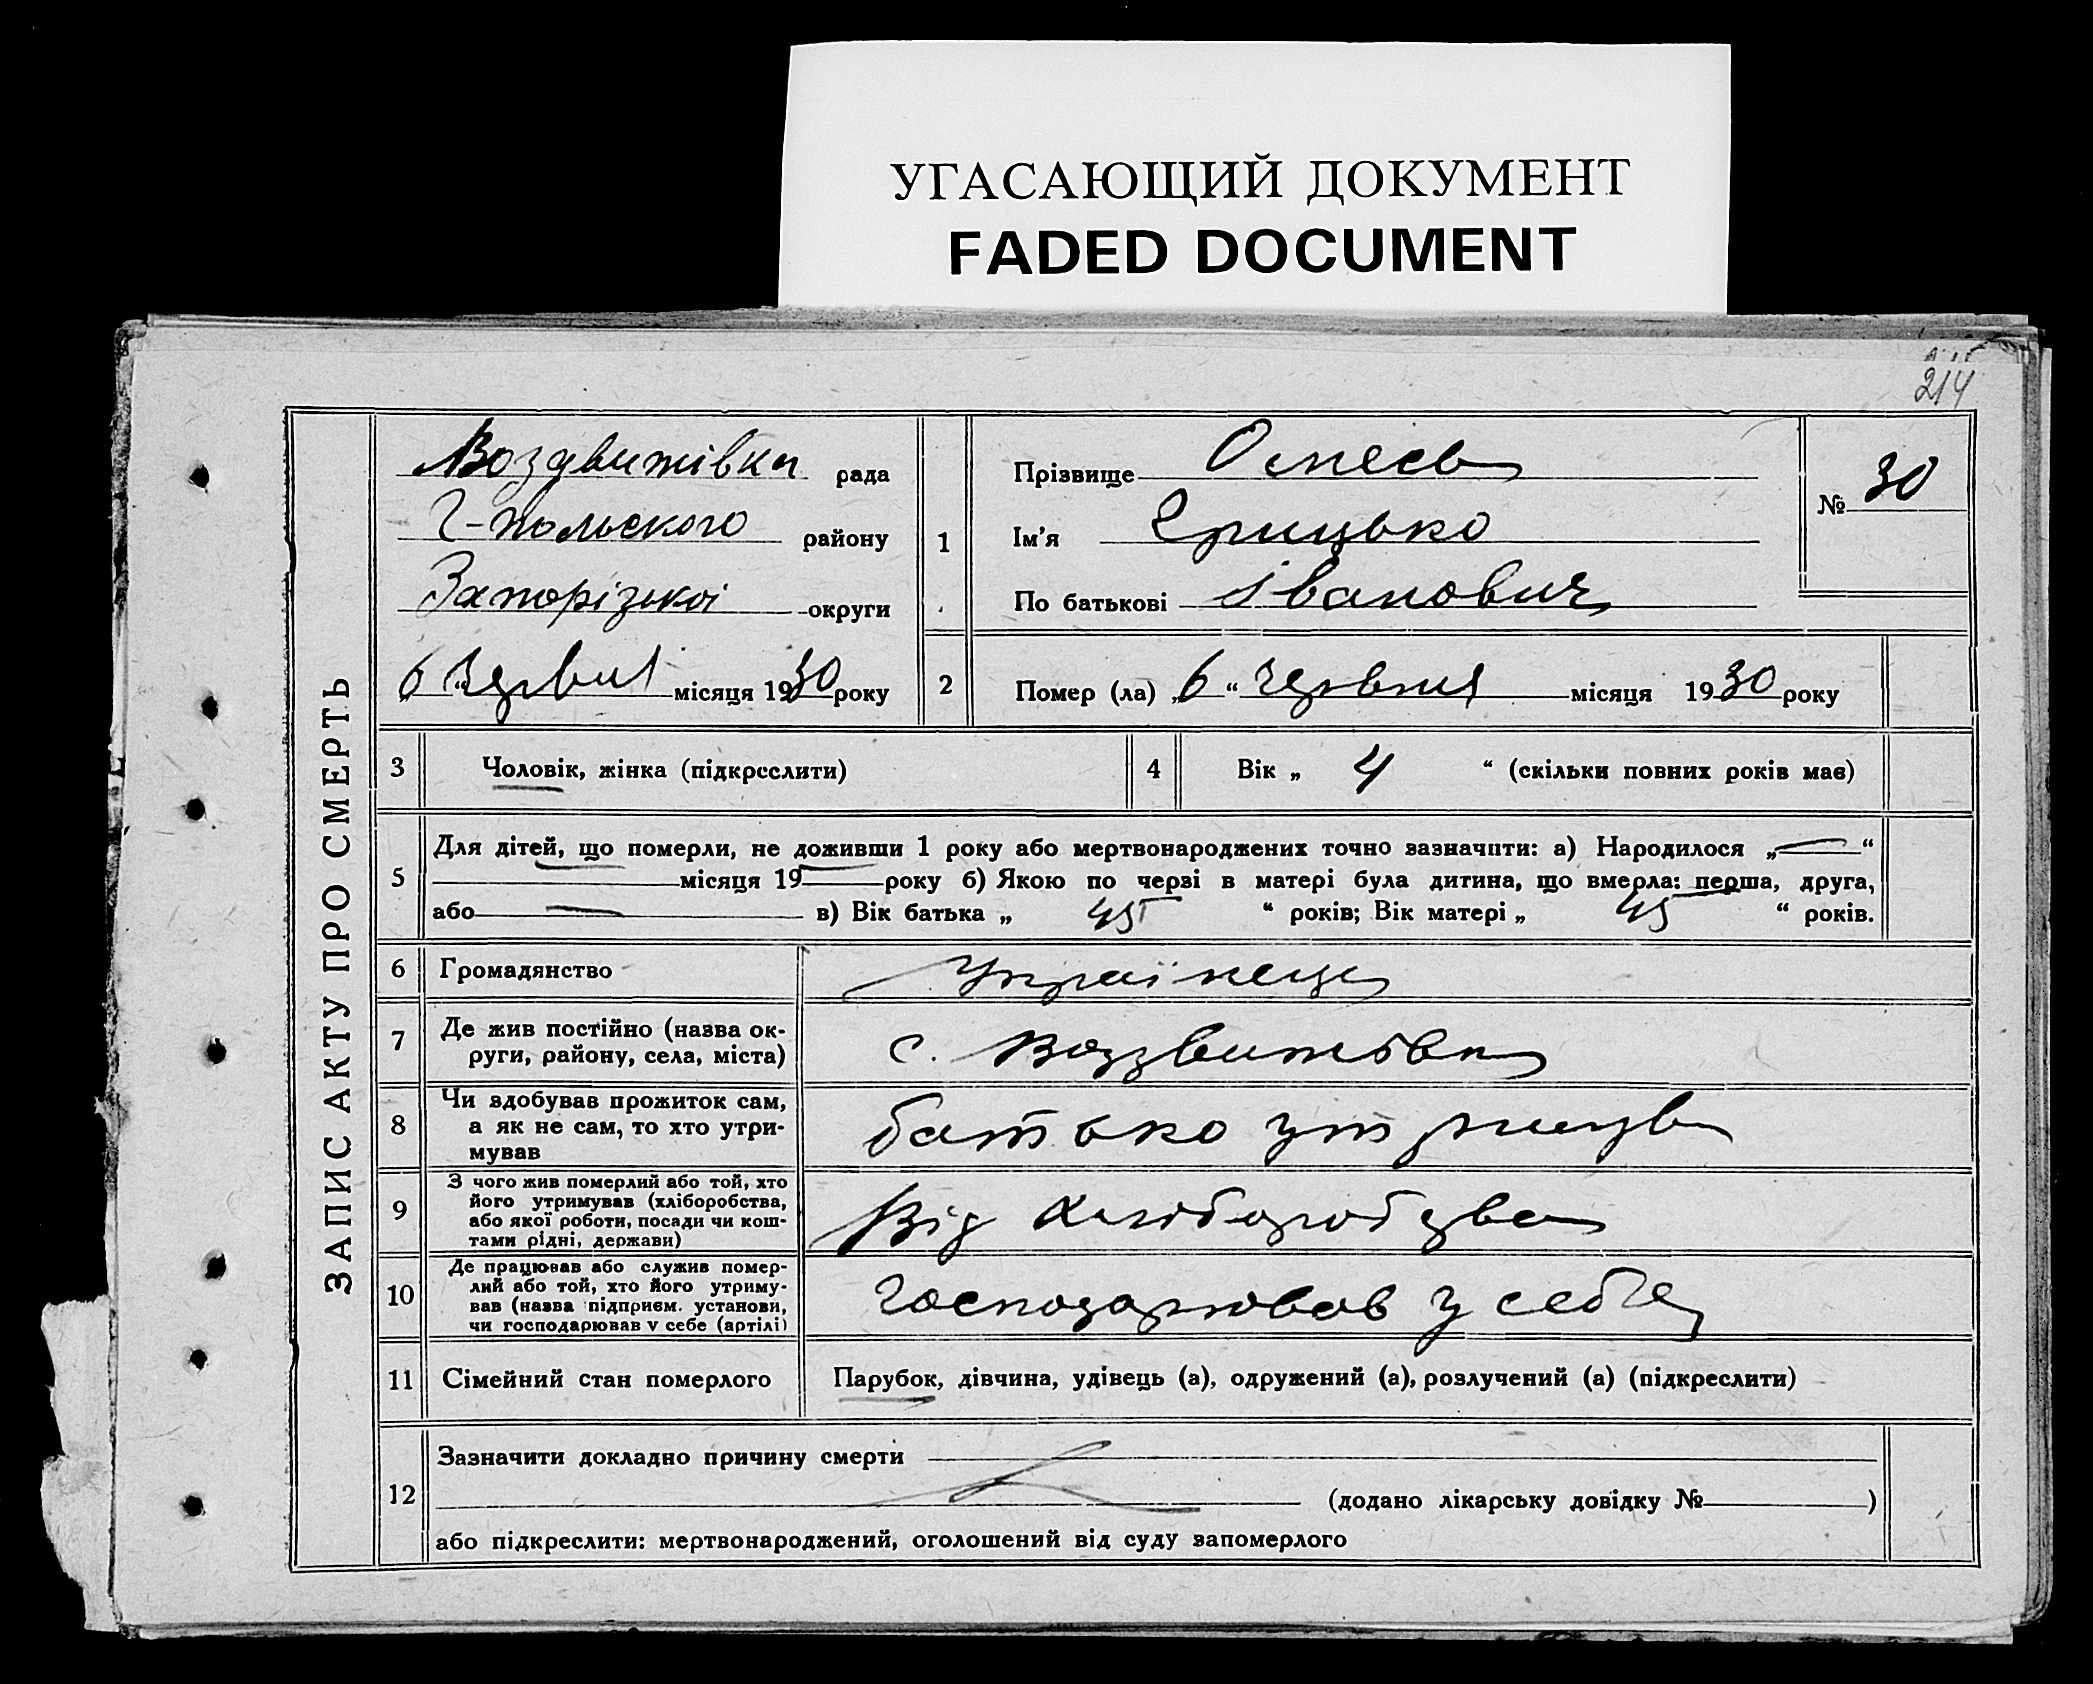 УГАСАЮЩИЙ ДОКУМЕНТ
FADED DOCUMENT
214
ЗАПИС АКТУ ПРО СМЕРТЬ
Воздвижівка рада
Г-польского району
Запорізької округи
„6“ червня місяця 1930 року
1
Прізвище
Ім'я Грицько
По батькові Іванович
№ 30
2
Помер (ла) „6“ червня місяця 1930 року
3 Чоловік, жінка (підкреслити)
4 Вік „ 4 “ (скільки повних років має)
5
Для дітей, що померли, не доживши 1 року або мертвонароджених точно зазначити: а) Народилося „—“
місяця 19 року б) Якою по черзі в матері була дитина, що вмерла: перша, друга,
або — в) Вік батька „ 45 “ років; Вік матері „ 45 “ років.
6 Громадянство Українець
7 Де жив постійно (назва ок-
руги, району, села, міста)
с. Воздвижівка
8 Чи здобував прожиток сам,
а як не сам, то хто утри-
мував
батько утримував
9 З чого жив померлий або той, хто
його утримував (хліборобства,
або якої роботи, посади чи кош-
тами рідні, держави)
Від хліборобства
10 Де працював або служив помер-
лий або той, хто його утриму-
вав (назва підприєм. установи,
чи господарював у себе (артілі)
Господарював у себе
11 Сімейний стан померлого Парубок, дівчина, удівець (а), одружений (а), розлучений (а) (підкреслити)
12
Зазначити докладно причину смерти
(додано лікарську довідку № )
або підкреслити: мертвонароджений, оголошений від суду запомерлого